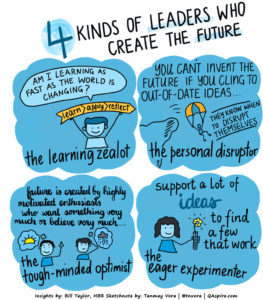 4 KINDS OF LEADERS WHO
CREATE THE FUTURE
AM I LEARNING AS
FAST AS THE WORLD IS
CHANGING?
learn > apply > reflect
the learning zealot
YOU CANT INVENT THE
FUTURE IF YOU CLING TO
OUT-OF-DATE IDEAS...
THEY KNOW WHEN
TO DISRUPT
THEMSELVES
the personal disruptor
future is created by highly
motivated enthusiasts
who want something very
much or believe very much...
the
tough-minded optimist
support a lot of
ideas
to find
a few
that work
the
eager experimenter
Insights by: Bill Taylor, HBR Sketchnote by: Tanmay Vora | @tnvora | QAspire.com